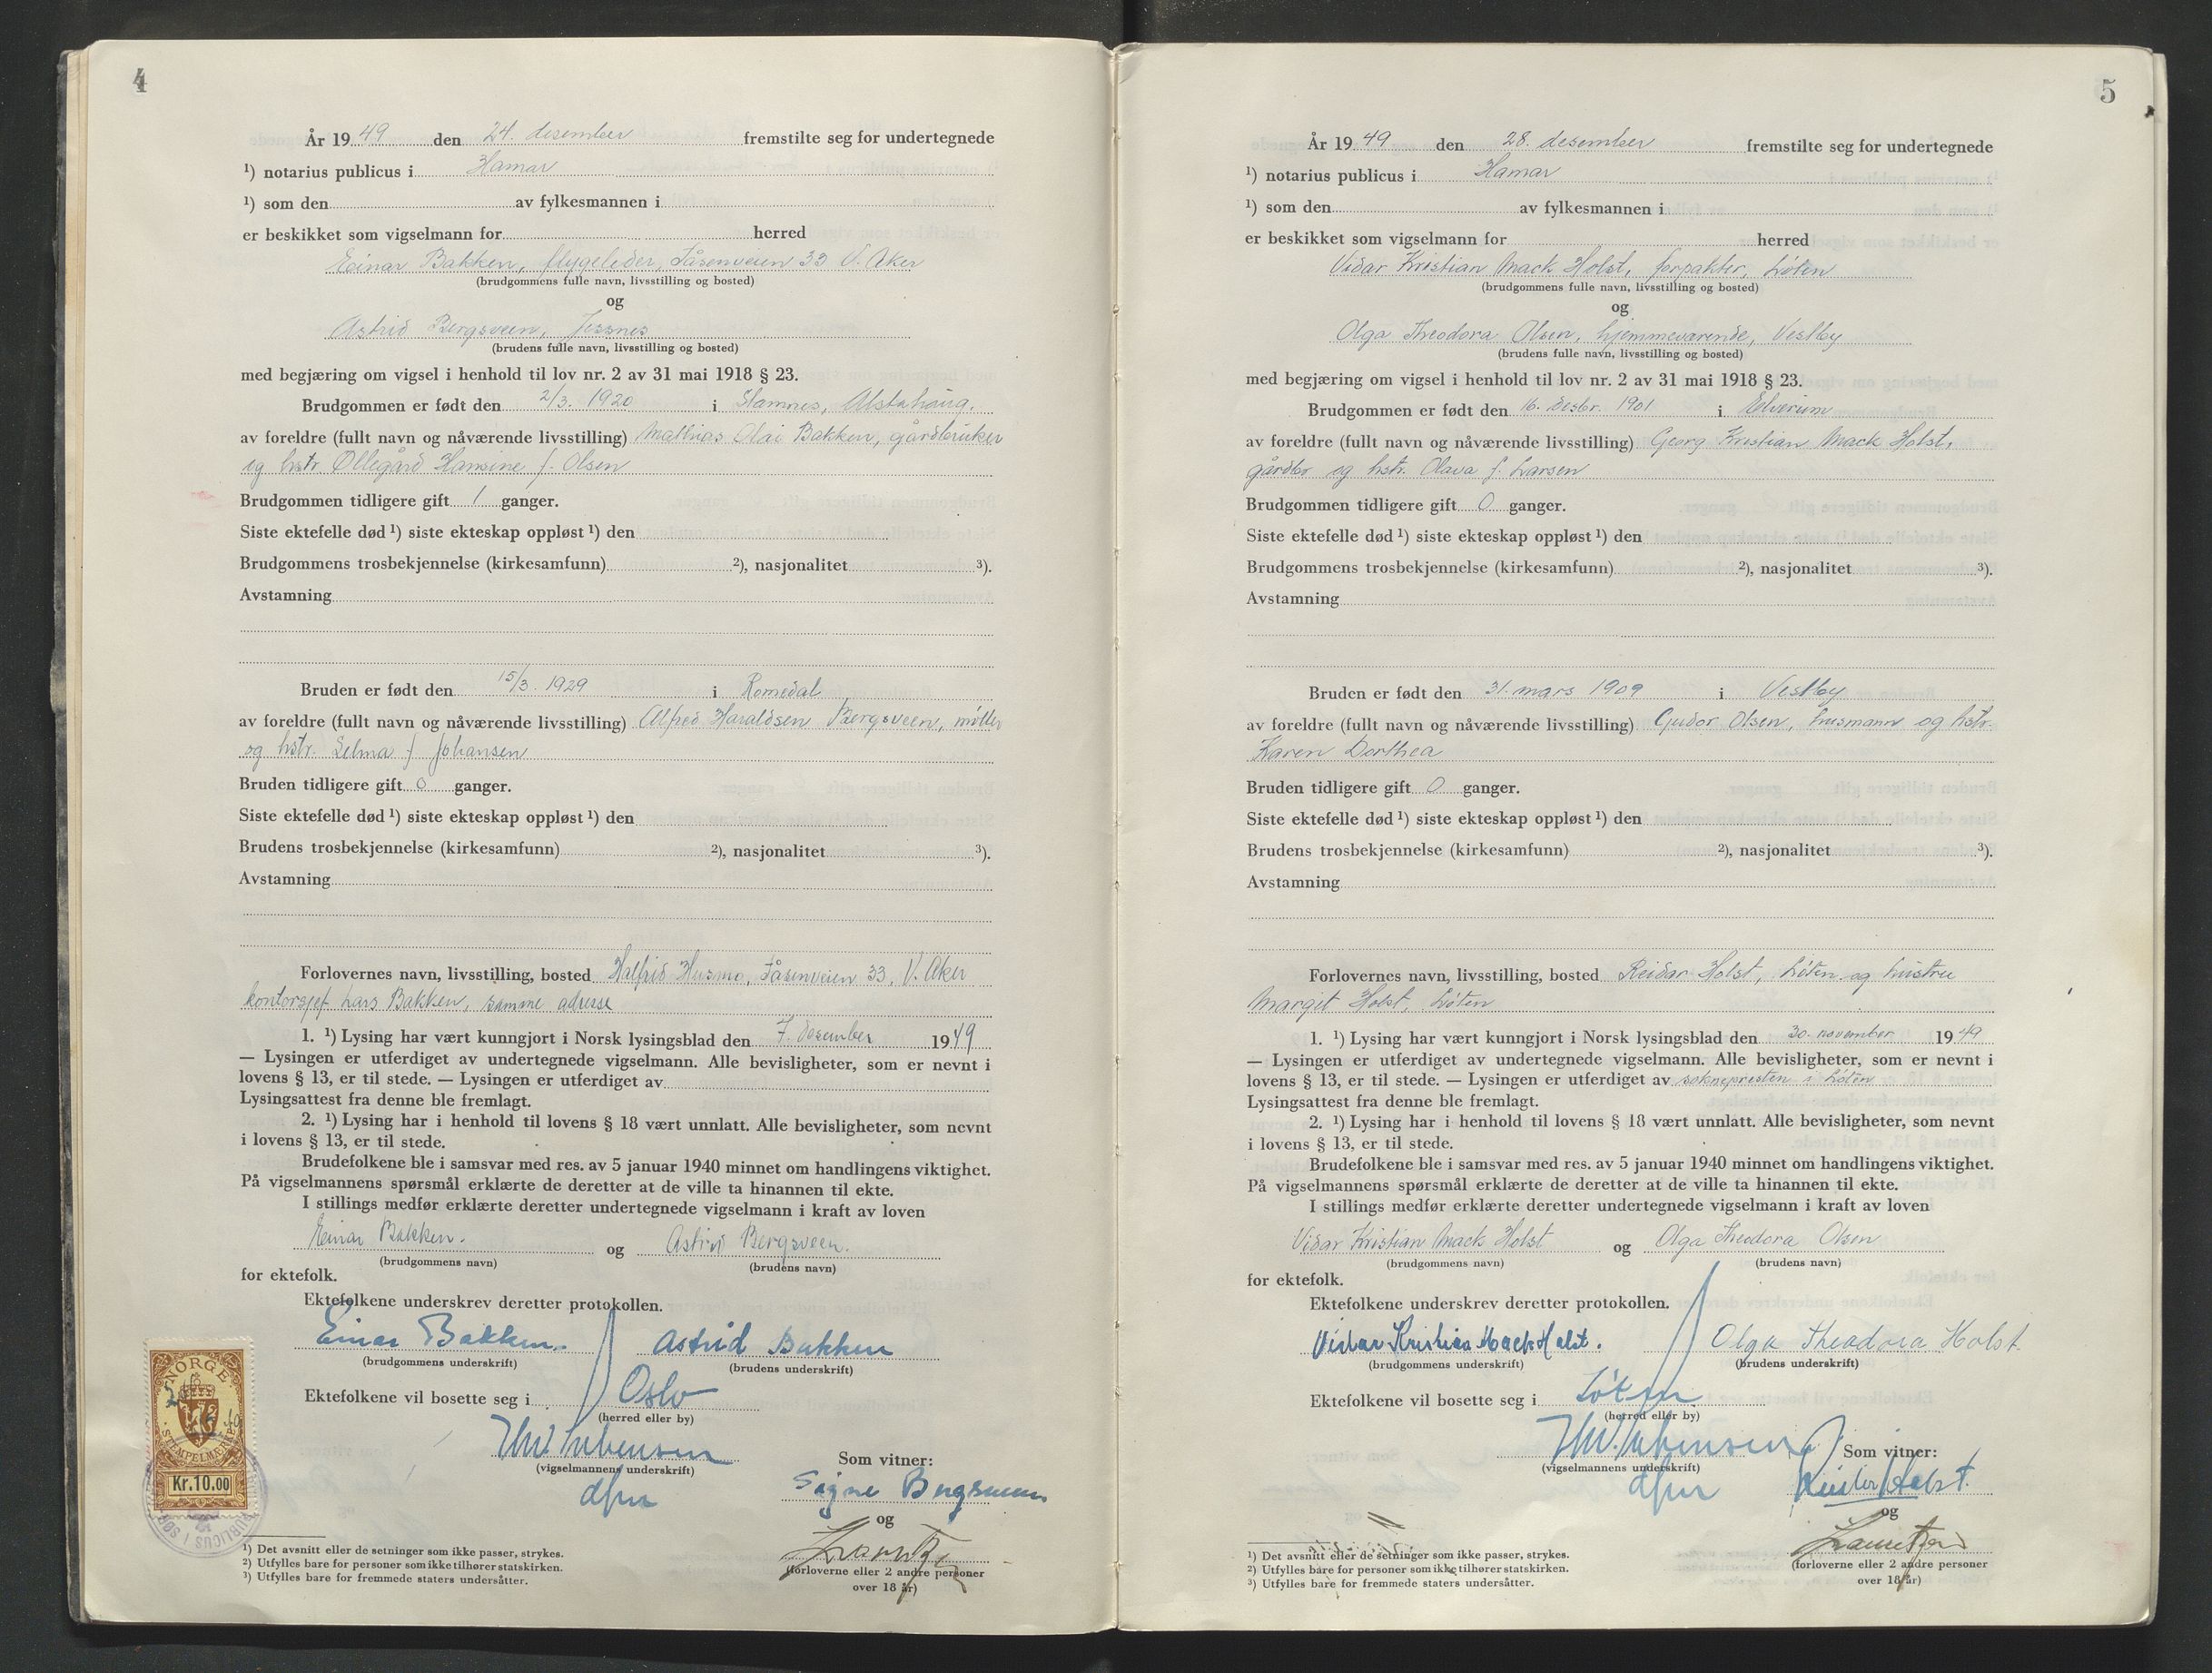 4
År 1949 den 24. desember fremstilte seg for undertegnede
¹) notarius publicus i Hamar
¹) som den av fylkesmannen i
er beskikket som vigselmann for herred
Einar Bakken, flygeleder, Tåsenveien 33 V. Aker
(brudgommens fulle navn, livsstilling og bosted)
og
Astrid Bergsveen, Jessnes
(brudens fulle navn, livsstilling og bosted)
med begjæring om vigsel i henhold til lov nr. 2 av 31 mai 1918 § 23.
Brudgommen er født den 2/3. 1920 i Stamnes, Alstahaug.
av foreldre (fullt navn og nåværende livsstilling) Mathias Olai Bakken, gårdbruker
og hstr Øllegård Hansine f. Olsen
Brudgommen tidligere gift 1 ganger.
Siste ektefelle død ¹) siste ekteskap oppløst ¹) den
Brudgommens trosbekjennelse (kirkesamfunn) ²), nasjonalitet ³).
Avstamning
Bruden er født den 15/3. 1929 i Romedal
av foreldre (fullt navn og nåværende livsstilling) Alfred Haraldsen Bergsveen, møller
og hstr. Selma f Johansen
Bruden tidligere gift 0 ganger.
Siste ektefelle død ¹) siste ekteskap oppløst ¹) den
Brudens trosbekjennelse (kirkesamfunn) ²), nasjonalitet ³).
Avstamning
Forlovernes navn, livsstilling, bosted Halfrid Husmo, Tåsenveien 33, V. Aker
kontorsjef Lars Bakken, samme adresse
1. ¹) Lysing har vært kunngjort i Norsk lysingsblad den 7. desember 1949
— Lysingen er utferdiget av undertegnede vigselmann. Alle bevisligheter, som er nevnt i
lovens § 13, er til stede. — Lysingen er utferdiget av
Lysingsattest fra denne ble fremlagt.
2. ¹) Lysing har i henhold til lovens § 18 vært unnlatt. Alle bevisligheter, som nevnt
i lovens § 13, er til stede.
Brudefolkene ble i samsvar med res. av 5 januar 1940 minnet om handlingens viktighet.
På vigselmannens spørsmål erklærte de deretter at de ville ta hinannen til ekte.
I stillings medfør erklærte deretter undertegnede vigselmann i kraft av loven
Einar Bakken. og Astrid Bergsveen.
(brudgommens navn) (brudens navn)
for ektefolk.
Ektefolkene underskrev deretter protokollen.
Einar Bakken. Astrid Bakken
(brudgommens underskrift) (brudens underskrift)
Ektefolkene vil bosette seg i Oslo
(herred eller by)
(vigselmannens underskrift) Som vitner:
dfm Signe Bergsveen
og
(forloverne eller 2 andre personer
over 18 år)
NORGE
STEMPELMERKE
Kr. 10.00
PUBLICUS I SØR
¹) Det avsnitt eller de setninger som ikke passer, strykes.
²) Utfylles bare for personer som ikke tilhører statskirken.
³) Utfylles bare for fremmede staters undersåtter.
5
År 1949 den 28. desember fremstilte seg for undertegnede
¹) notarius publicus i Hamar
¹) som den av fylkesmannen i
er beskikket som vigselmann for herred
Vidar Kristian Mack Holst, forpakter, Løten
(brudgommens fulle navn, livsstilling og bosted)
og
Olga Theodora Olsen, hjemmeværende, Vestby
(brudens fulle navn, livsstilling og bosted)
med begjæring om vigsel i henhold til lov nr. 2 av 31 mai 1918 § 23.
Brudgommen er født den 16. desbr. 1901 i Elverum
av foreldre (fullt navn og nåværende livsstilling) Georg Kristian Mack Holst,
gårdbr og hstr. Olava f. Larsen
Brudgommen tidligere gift 0 ganger.
Siste ektefelle død ¹) siste ekteskap oppløst ¹) den
Brudgommens trosbekjennelse (kirkesamfunn) ²), nasjonalitet ³).
Avstamning
Bruden er født den 31. mars 1909 i Vestby
av foreldre (fullt navn og nåværende livsstilling) Gudor Olsen, husmann og hstr.
Karen Dorthea
Bruden tidligere gift 0 ganger.
Siste ektefelle død ¹) siste ekteskap oppløst ¹) den
Brudens trosbekjennelse (kirkesamfunn) ²), nasjonalitet ³).
Avstamning
Forlovernes navn, livsstilling, bosted Reidar Holst, Løten og hustru
Margit Holst, Løten
1. ¹) Lysing har vært kunngjort i Norsk lysingsblad den 30. november 1949
— Lysingen er utferdiget av undertegnede vigselmann. Alle bevisligheter, som er nevnt i
lovens § 13, er til stede. — Lysingen er utferdiget av soknepresten i Løten
Lysingsattest fra denne ble fremlagt.
2. ¹) Lysing har i henhold til lovens § 18 vært unnlatt. Alle bevisligheter, som nevnt
i lovens § 13, er til stede.
Brudefolkene ble i samsvar med res. av 5 januar 1940 minnet om handlingens viktighet.
På vigselmannens spørsmål erklærte de deretter at de ville ta hinannen til ekte.
I stillings medfør erklærte deretter undertegnede vigselmann i kraft av loven
Vidar Kristian Mack Holst og Olga Theodora Olsen
(brudgommens navn) (brudens navn)
for ektefolk.
Ektefolkene underskrev deretter protokollen.
Vidar Kristian Mack Holst. Olga Theodora Holst.
(brudgommens underskrift) (brudens underskrift)
Ektefolkene vil bosette seg i Løten
(herred eller by)
(vigselmannens underskrift) Som vitner:
dfm Reidar Holst.
og
(forloverne eller 2 andre personer
over 18 år)
¹) Det avsnitt eller de setninger som ikke passer, strykes.
²) Utfylles bare for personer som ikke tilhører statskirken.
³) Utfylles bare for fremmede staters undersåtter.